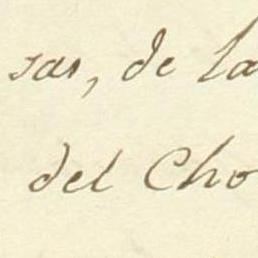 sas, de la
del Cho